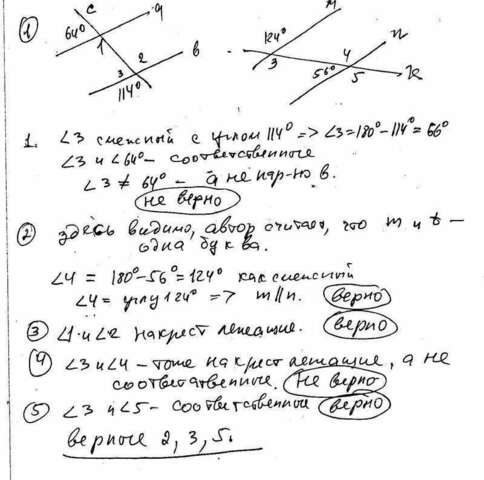 ①
c
a
64°
1
2
в
3
114°
м
124°
3
4
n
56°
5
к
1. ∠3 смежный с углом 114° => ∠3=180°-114°=66°
∠3 и ∠64° - соответственные
∠3 ≠ 64° - а не пар-но в.
не верно
② здесь видимо, автор считает, что m и t -
одна буква.
∠4 = 180°-56°=124° как смежный
∠4 = углу 124° => m||n. верно
③ ∠1 и ∠2 накрест лежащие. верно
④ ∠3 и ∠4 - тоже накрест лежащие, а не
соответственные. не верно
⑤ ∠3 и ∠5 - соответственные верно
верные 2, 3, 5.